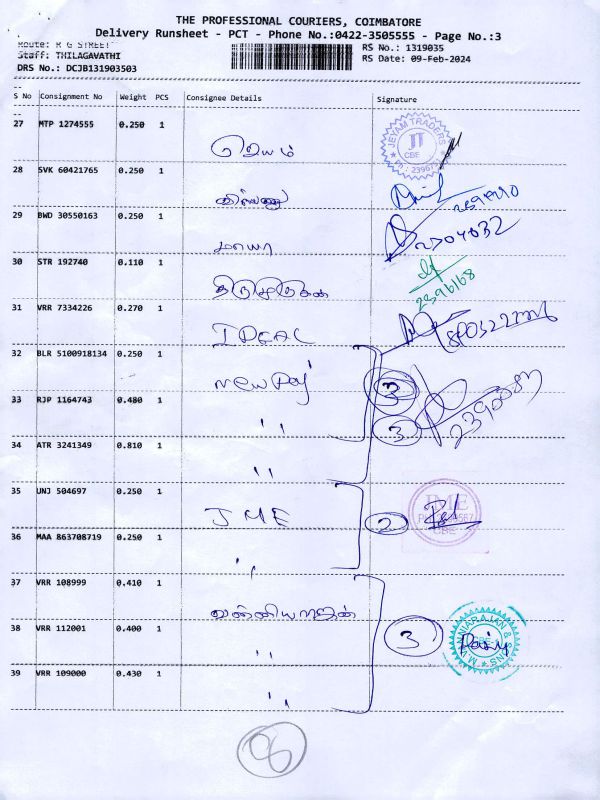 THE PROFESSIONAL COURIERS, COIMBATORE
Delivery Runsheet - PCT - Phone No.:0422-3505555 - Page No.:3
Route: R G STREET
RS No.: 1319035
Staff: THILAGAVATHI
RS Date: 09-Feb-2024
DRS No.: DCJB131903503
S No Consignment No Weight PCS Consignee Details Signature
27 MTP 1274555 0.250 1 ஜெயம்
JEYAM TRADERS
JT
CBE
28 SVK 60421765 0.250 1
29 BWD 30550163 0.250 1 மாயா
2304632
30 STR 192740 0.110 1
2396168
31 VRR 7334226 0.270 1 IDEAL
32 BLR 5100918134 0.250 1 New Raj
3
33 RJP 1164743 0.480 1 ,,
3
34 ATR 3241349 0.810 1 ,,
35 UNJ 504697 0.250 1 JME
2
JME
CBE
36 MAA 863708719 0.250 1 ,,
37 VRR 108999 0.410 1 வன்னியராஜன்
38 VRR 112001 0.400 1 ,,
3
M.VANNIARAJAN & SONS
CBE-1
39 VRR 109000 0.430 1 ,,